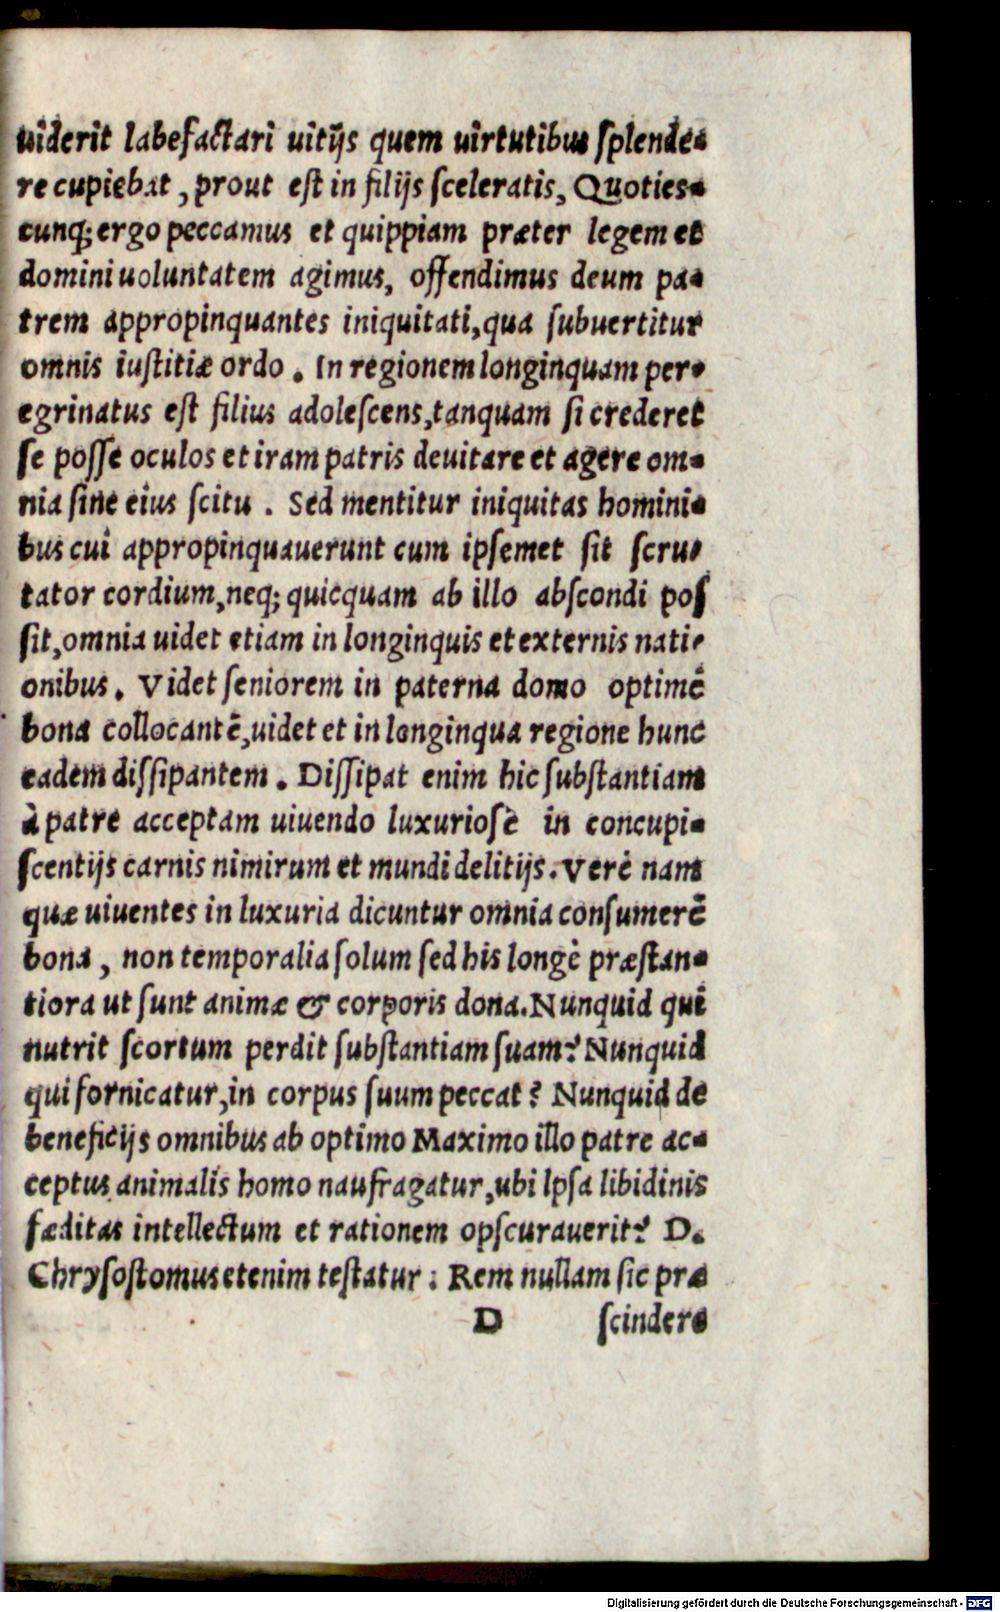 uiderit labefactari uitijs quem uirtutibus splende-
re cupiebat, prout est in filijs sceleratis, Quoties-
cunq; ergo peccamus et quippiam præter legem et
domini uoluntatem agimus, offendimus deum pa-
trem appropinquantes iniquitati, qua subuertitur
omnis iustitiæ ordo. In regionem longinquam per-
egrinatus est filius adolescens, tanquam si crederet
se posse oculos et iram patris deuitare et agere om-
nia sine eius scitu. Sed mentitur iniquitas homini-
bus cui appropinquauerunt cum ipsemet sit scru-
tator cordium, neq; quicquam ab illo abscondi pos
sit, omnia uidet etiam in longinquis et externis nati-
onibus. Videt seniorem in paterna domo optimè
bona collocantē, uidet et in longinqua regione hunc
eadem dissipantem. Dissipat enim hic substantiam
à patre acceptam uiuendo luxuriosè in concupi-
scentijs carnis nimirum et mundi delitijs. Verè nam
quæ uiuentes in luxuria dicuntur omnia consumere
bona, non temporalia solum sed his longè præstan-
tiora ut sunt animæ & corporis dona. Nunquid qui
nutrit scortum perdit substantiam suam? Nunquid
qui fornicatur, in corpus suum peccat? Nunquid de
beneficijs omnibus ab optimo Maximo illo patre ac-
ceptus animalis homo naufragatur, ubi Ipsa libidinis
fæditas intellectum et rationem opscurauerit? D.
Chrysostomus etenim testatur: Rem nullam sic præ
D scindere
Digitalisierung gefördert durch die Deutsche Forschungsgemeinschaft - DFG